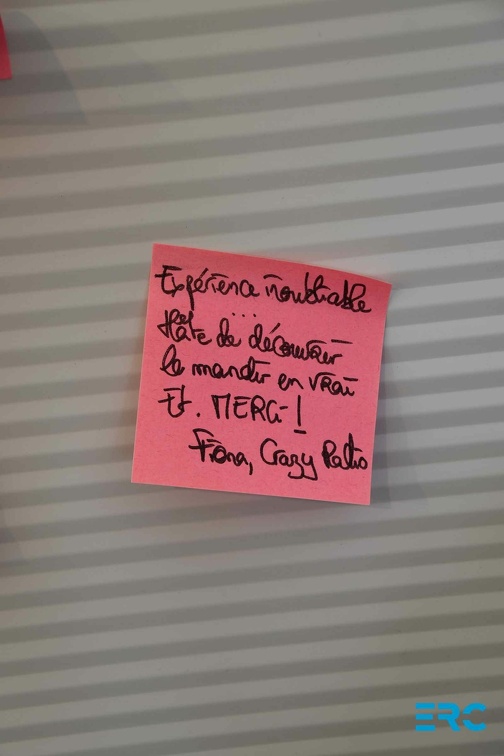 Expérience inoubliable
...
Hâte de découvrir
le mandir en vrai
Et. MERCI !
Fiona, Crazy
ERC